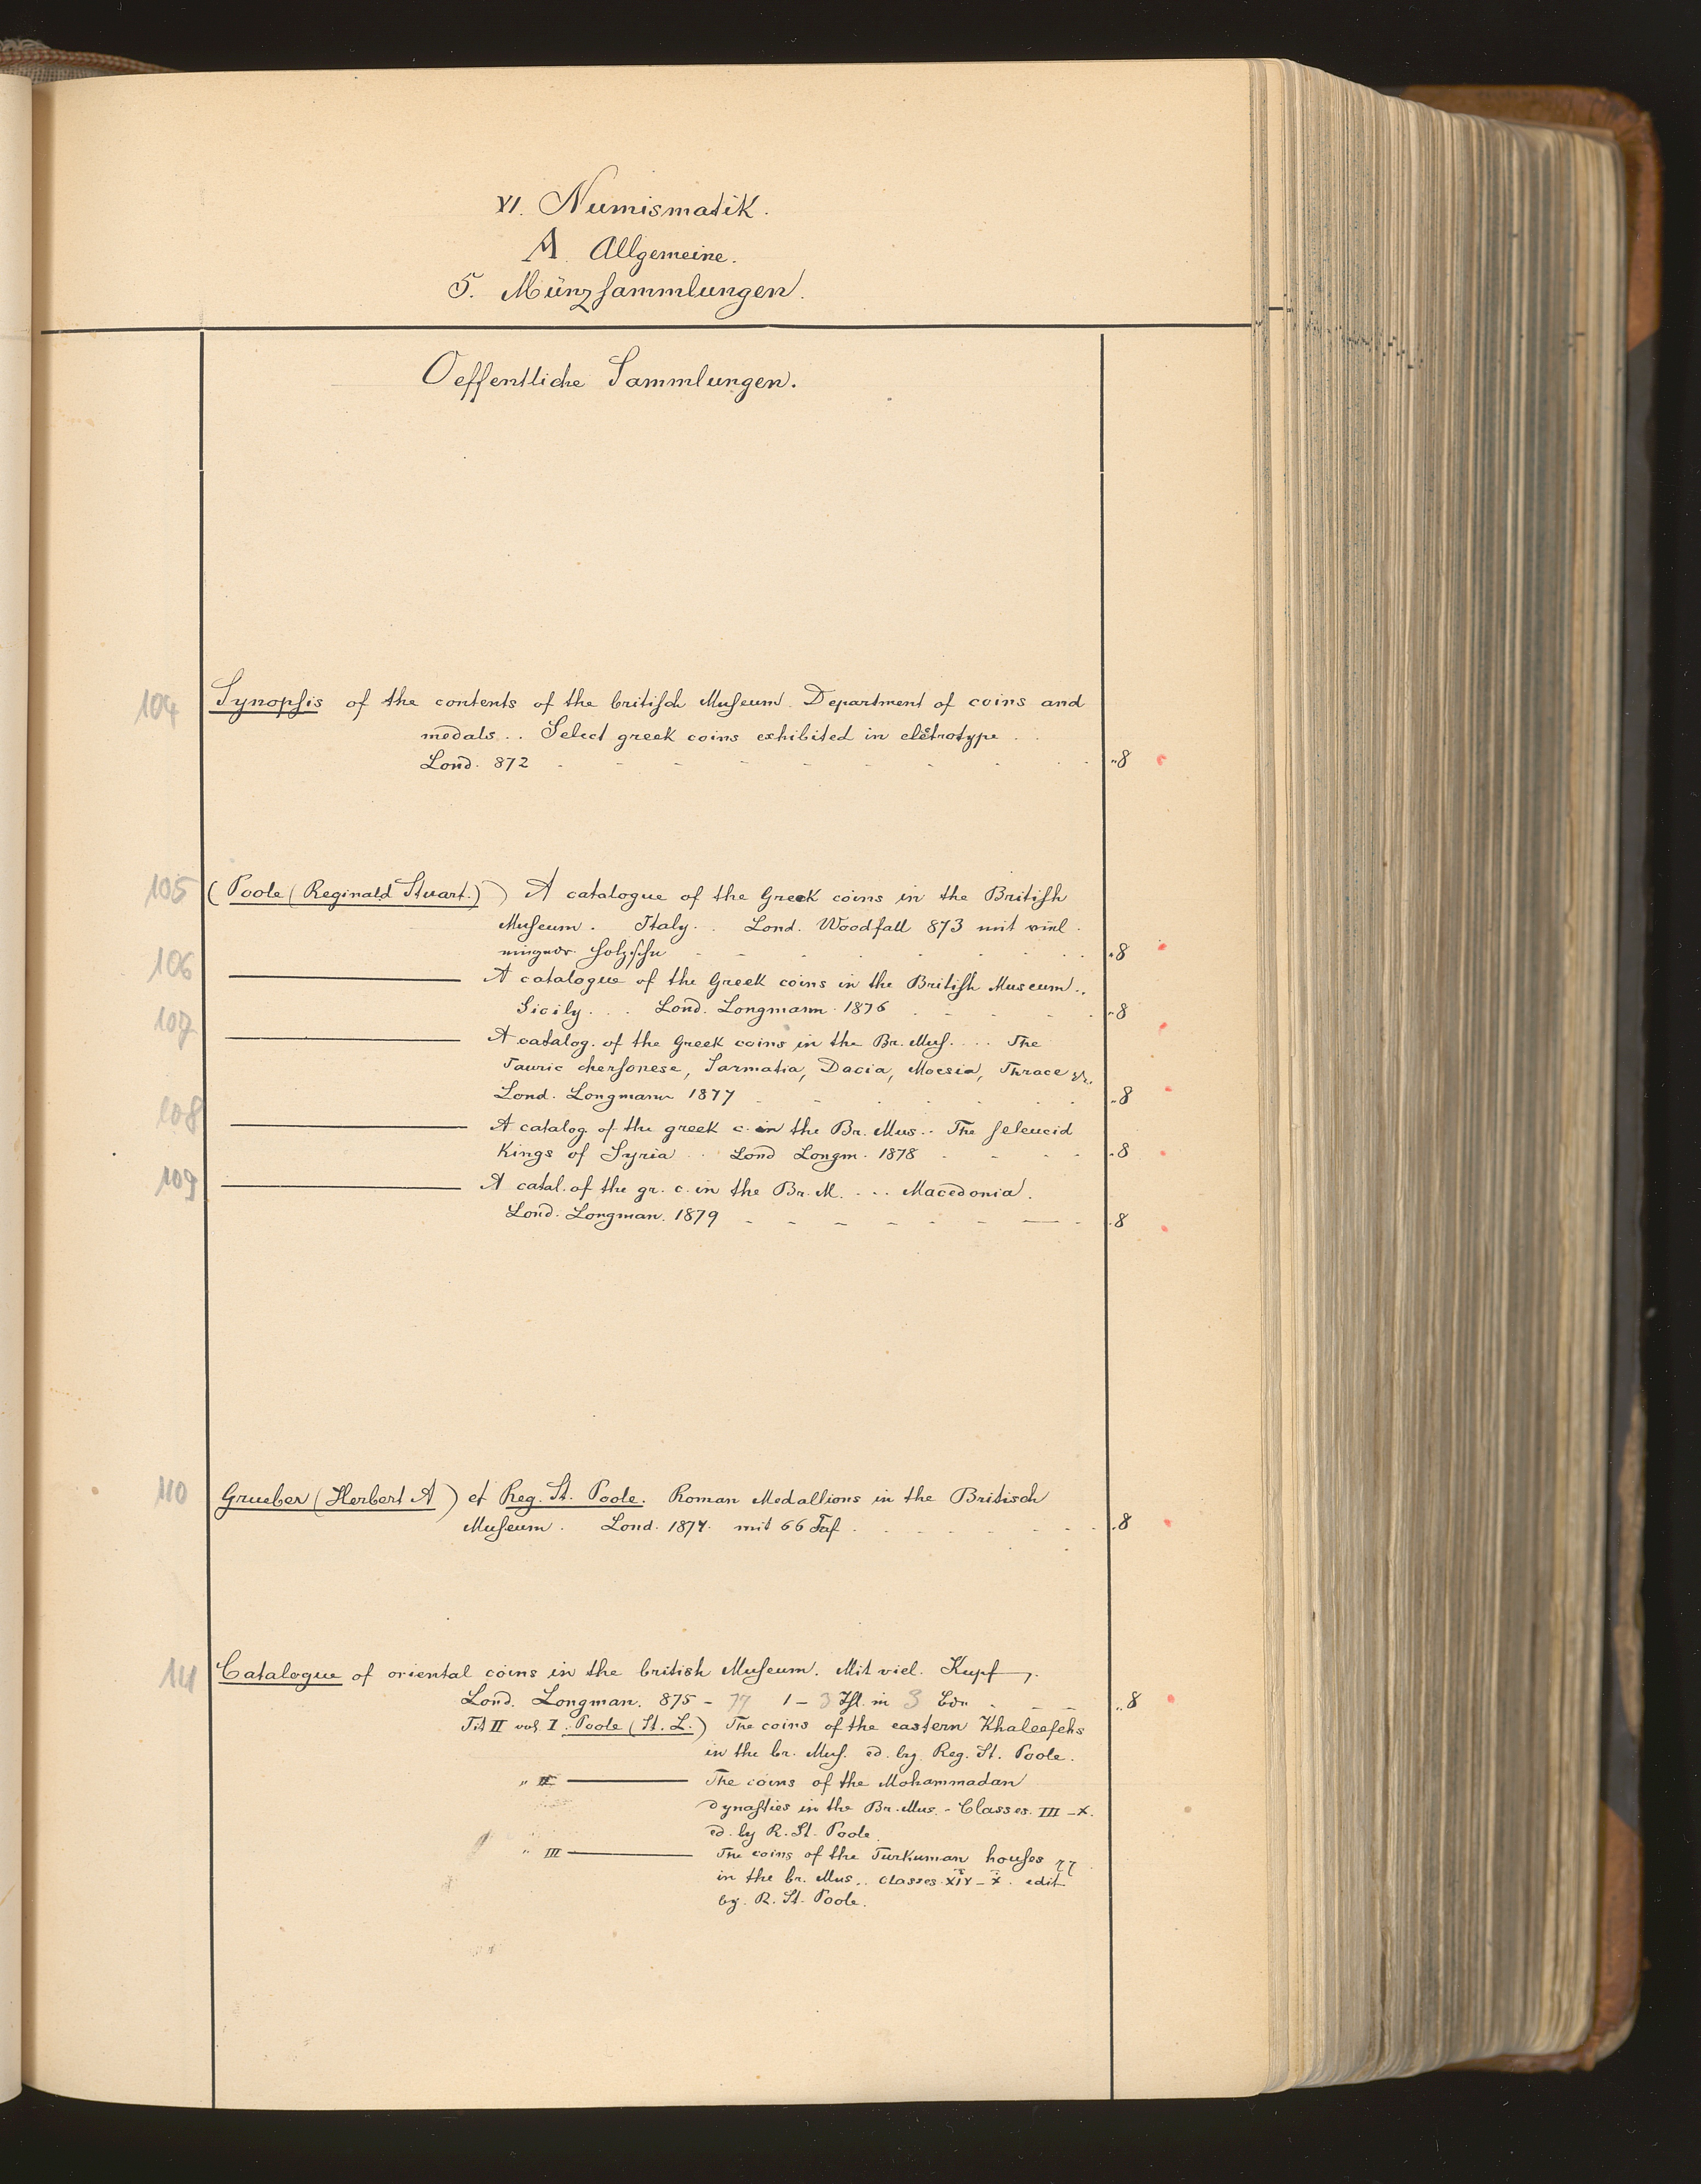 VI. Numismatik.
A. Allgemeine.
5. Münzsammlungen.
Oeffentliche Sammlungen.
104 Synopsis of the contents of the britisch Museum. Department of coins and
medals. . Select greek coins exhibited in elctrotype . .
Lond. 872 8
105 (Poole (Reginald Stuart.)) A catalogue of the Greek coins in the British
Museum. Italy. . Lond. Woodfall 873 mit viel.
Holzschn 8
106 A catalogue of the Greek coins in the British Museum. .
Sicily. . . Lond. Longmann. 1876 8
107 A catalog. of the Greek coins in the Br. Mus. . . . The
Tauric chersonese, Sarmatia, Dacia, Moesia, Thrace etc.
Lond. Longmann 1877 8
108 A catalog of the greek c. in the Br. Mus. . The seleucid
Kings of Syria . . Lond Longm. 1878 8
109 A catal. of the gr. c. in the Br. M. . . . Macedonia.
Lond. Longman. 1879 8
110 Grueber (Herbert A) et Reg. St. Poole. Roman Medallions in the Britisch
Museum. Lond. 1874. mit 66 Taf. 8
111 Catalogue of oriental coins in the british Museum. Mit viel. Kupf.
Lond. Longman. 875 - 77 1 - 3 Thl. in 3 Bdn 8
Tit II vol I. Poole (St. L.) The coins of the eastern Khaleefehs
in the br. Mus. ed. by. Reg. St. Poole.
" II The coins of the Mohammadan
dynasties in the Br. Mus. - Classes. III - X.
ed. by R. St. Poole.
" III The coins of the Turkuman houses
in the br. Mus. . classes. edit
by. R. St. Poole.